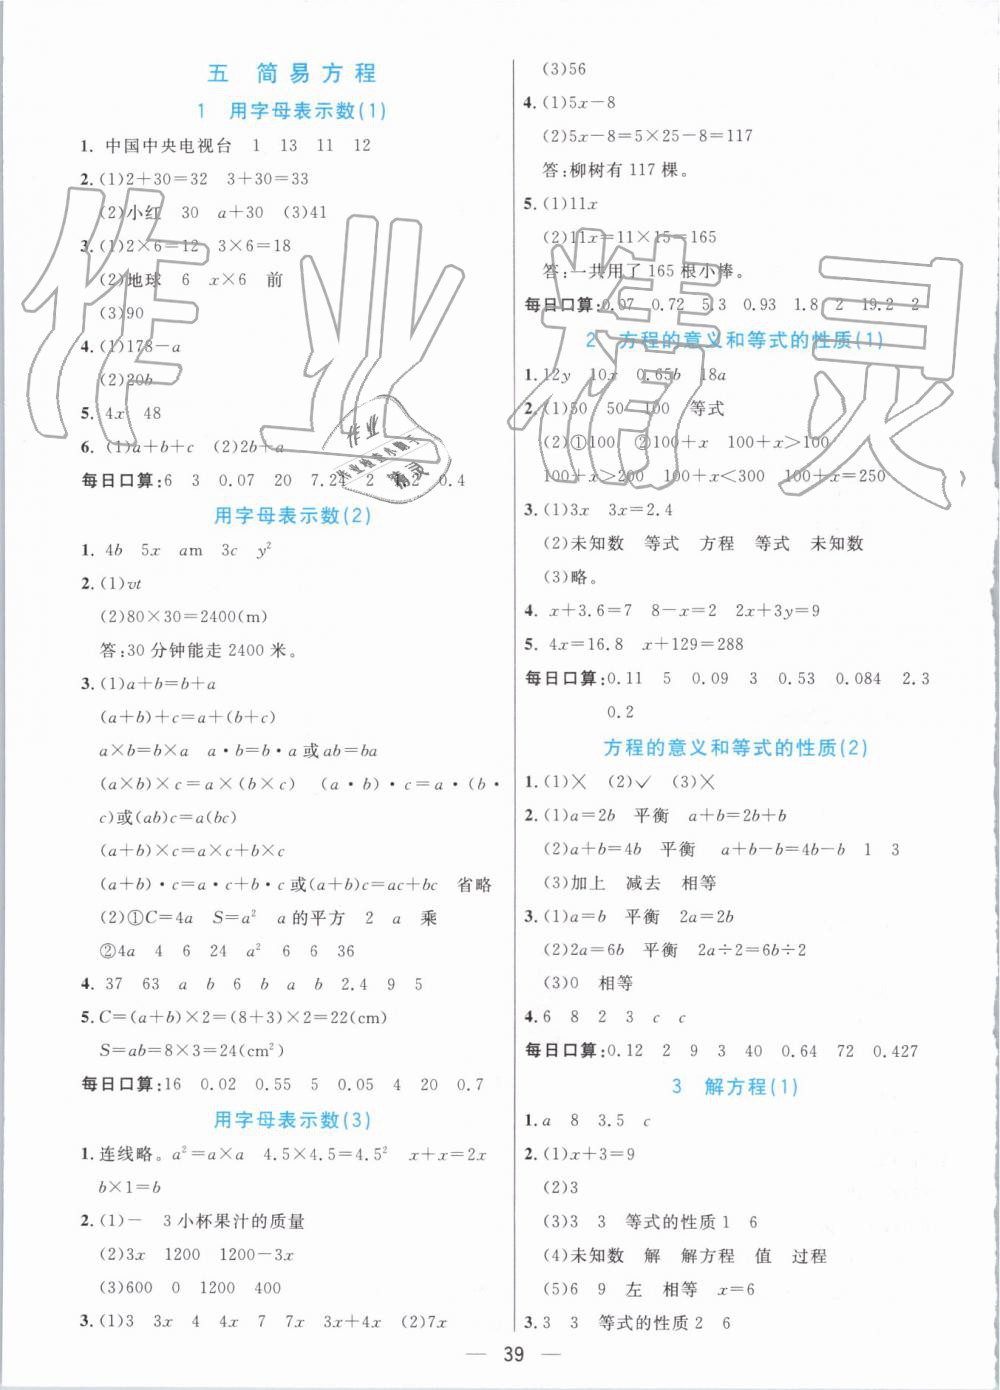 五 简易方程
1 用字母表示数(1)
1. 中国中央电视台 1 13 11 12
2. (1)2+30=32 3+30=33
(2)小红 30 a+30 (3)41
3. (1)2×6=12 3×6=18
(2)地球 6 x×6 前
(3)90
4. (1)178-a
(2)20b
5. 4x 48
6. (1)a+b+c (2)2b+a
每日口算:6 3 0.07 20 7.24 2 0.4
用字母表示数(2)
1. 4b 5x am 3c y²
2. (1)vt
(2)80×30=2400(m)
答:30分钟能走2400米。
3. (1)a+b=b+a
(a+b)+c=a+(b+c)
a×b=b×a a·b=b·a或ab=ba
(a×b)×c=a×(b×c) (a·b)·c=a·(b·
c)或(ab)c=a(bc)
(a+b)×c=a×c+b×c
(a+b)·c=a·c+b·c或(a+b)c=ac+bc 省略
(2)①C=4a S=a² a的平方 2 a 乘
②4a 4 6 24 a² 6 6 36
4. 37 63 a b 6 b a b 2.4 9 5
5. C=(a+b)×2=(8+3)×2=22(cm)
S=ab=8×3=24(cm²)
每日口算:16 0.02 0.55 5 0.05 4 20 0.7
用字母表示数(3)
1. 连线略。a²=a×a 4.5×4.5=4.5² x+x=2x
b×1=b
2. (1)- 3小杯果汁的质量
(2)3x 1200 1200-3x
(3)600 0 1200 400
3. (1)3 3x 4 4x 7 7x 3x+4x (2)7x
(3)56
4. (1)5x-8
(2)5x-8=5×25-8=117
答:柳树有117棵。
5. (1)11x
(2)11x=11×15=165
答:一共用了165根小棒。
每日口算:0.07 0.72 5.3 0.93 1.8 2 19.2 2
2 方程的意义和等式的性质(1)
1. 12y 10x 0.65b 18a
2. (1)50 50 100 等式
(2)①100 ②100+x 100+x>100
100+x>200 100+x<300 100+x=250
3. (1)3x 3x=2.4
(2)未知数 等式 方程 等式 未知数
(3)略。
4. x+3.6=7 8-x=2 2x+3y=9
5. 4x=16.8 x+129=288
每日口算:0.11 5 0.09 3 0.53 0.084 2.3
0.2
方程的意义和等式的性质(2)
1. (1)× (2)✓ (3)×
2. (1)a=2b 平衡 a+b=2b+b
(2)a+b=4b 平衡 a+b-b=4b-b 1 3
(3)加上 减去 相等
3. (1)a=b 平衡 2a=2b
(2)2a=6b 平衡 2a÷2=6b÷2
(3)0 相等
4. 6 8 2 3 c c
每日口算:0.12 2 9 3 40 0.64 72 0.427
3 解方程(1)
1. a 8 3.5 c
2. (1)x+3=9
(2)3
(3)3 3 等式的性质1 6
(4)未知数 解 解方程 值 过程
(5)6 9 左 相等 x=6
3. 3 3 等式的性质2 6
39
作业精灵
作业
精灵